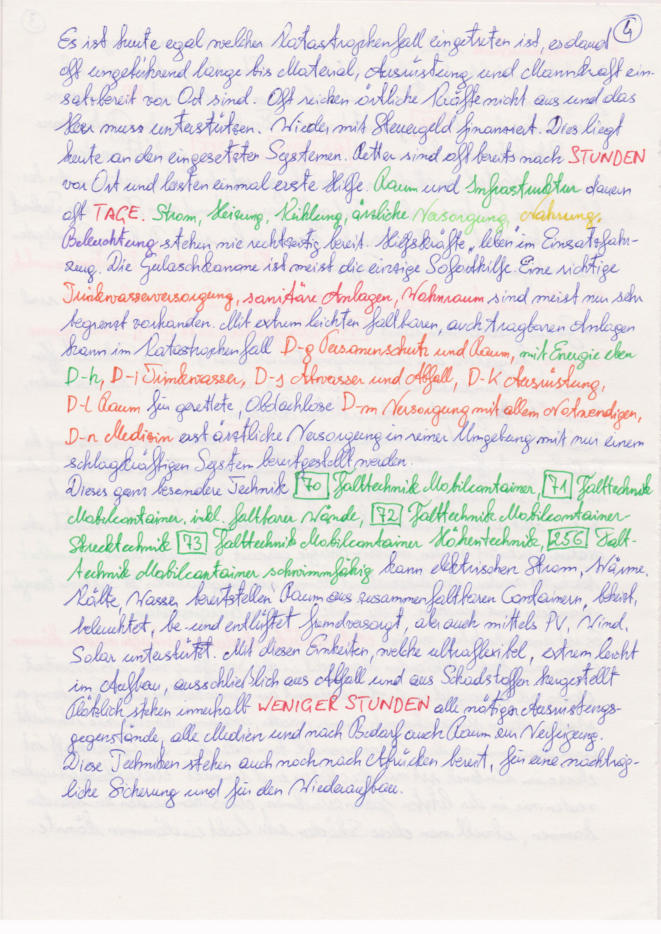 4
Es ist heute egal welcher Katastrophenfall eingetreten ist, es dauert
oft ungebührend lange bis Material, Ausrüstung und Mannkraft ein-
satzbereit vor Ort sind. Oft reichen örtliche Kräfte nicht aus und das
Heer muss unterstützen. Wieder mit Steuergeld finanziert. Dies liegt
heute an den eingesetzten Systemen. Retter sind oft bereits nach STUNDEN
vor Ort und leisten einmal erste Hilfe. Raum und Infrastruktur dauern
oft TAGE. Strom, Heizung, Kühlung, ärztliche Versorgung, Nahrung,
Beleuchtung stehen nie rechtzeitig bereit. Hilfskräfte „leben" im Einsatzfahr-
zeug. Die Gulaschkanone ist meist die einzige Soforthilfe. Eine richtige
Trinkwasserversorgung, sanitäre Anlagen, Wohnraum sind meist nur sehr
begrenzt vorhanden. Mit extrem leichten faltbaren, auch tragbaren Anlagen
kann im Katastrophenfall D-g Personenschutz und Raum, mit Energie eben
D-h, D-i Trinkwasser, D-j Abwasser und Abfall, D-K Ausrüstung,
D-l Raum für gerettete, Obdachlose D-m Versorgung mit allem Notwendigen,
D-n Medizin erst ärztliche Versorgung in reiner Umgebung mit nur einem
schlagkräftigen System bereitgestellt werden.
Dieses ganz besondere Technik 70 Falttechnik Mobilcontainer, 71 Falttechnik
Mobilcontainer, inkl. faltbarer Wände, 72 Falttechnik Mobilcontainer-
Strecktechnik 73 Falttechnik Mobilcontainer Höhentechnik, 256 Falt-
technik Mobilcontainer schwimmfähig kann elektrischen Strom, Wärme,
Kälte, Wasser bereitstellen Raum aus zusammenfaltbaren Containern, beheizt,
beleuchtet, be- und entlüftet fremdversorgt, aber auch mittels PV, Wind,
Solar unterstützt. Mit diesen Einheiten, welche ultraflexibel, extrem leicht
im Aufbau, ausschließlich aus Abfall und aus Schadstoffen hergestellt
Plötzlich stehen innerhalb WENIGER STUNDEN alle nötigen Ausrüstungs-
gegenstände, alle Medien und nach Bedarf auch Raum zur Verfügung.
Diese Techniken stehen auch noch nach Abrücken bereit, für eine nachträg-
liche Sicherung und für den Wiederaufbau.